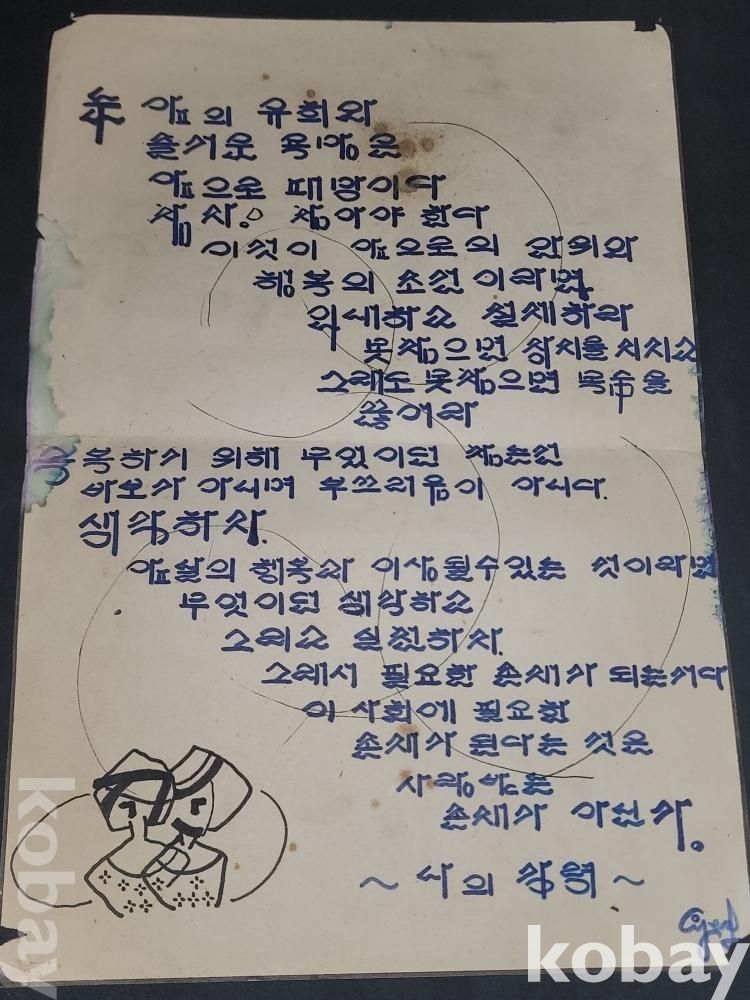 눈 앞의 유희와
즐거운 욕망은
앞으로 패망이다
참자. 참아야 한다
이것이 앞으로의 안위와
행복의 조건이라면
인내하고 절제하라
못참으면
그래도 못참으면 목숨을
끊어라
복하기 위해 무엇이던 참는건
바보가 아니며 부끄러움이 아니다.
생각하자.
앞날의 행복과 이상될수있는 것이라면
무엇이던 생각하고
그리고 실천하자.
그래서 필요한 존재가 되는거다
이 사회에 필요한
존재가 된다는 것은
사랑받는
존재가 아닌가.
~ 나의 ~
kobay
kobay